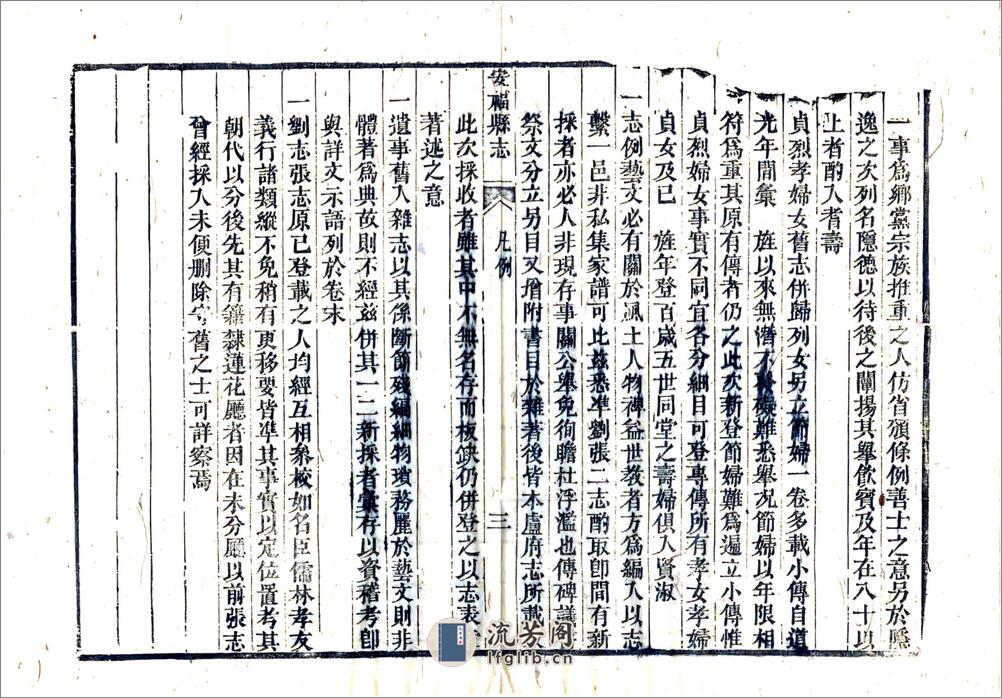 一事爲鄉黨宗族推重之人仿省頒條例善士之意另於隱
逸之次列名隱德以待後之闡揚其舉飲賓及年在八十以
上者酌入耆壽
貞烈孝婦女舊志併歸列女另立節婦一卷多載小傳自道
光年間彙 旌以來無潛不發礙難悉舉况節婦以年限相
符爲重其原有傳者仍之此次新登節婦難爲遍立小傳惟
貞烈婦女事實不同宜各分細目可登專傳所有孝女孝婦
貞女及已 旌年登百歲五世同堂之壽婦俱入賢淑
一志例藝文必有關於風土人物碑益世教者方爲編入以志
繫一邑非私集家譜可比兹悉準劉張二志酌取卽間有新
採者亦必人非現存事關公舉免徇瞻杜浮濫也傳碑議
祭文分立另目又增附書目於雜著後皆本廬府志所載
安福縣志
凡例
三
此次採收者雖其中不無名存而板缺仍併登之以志表
著述之意
一遺事舊入雜志以其係斷簡殘編細物瑣務麗於藝文則非
體著爲典故則不經兹併其一二新採者彙存以資稽考卽
與詳文示語列於卷末
一劉志張志原已登載之人均經互相叅校如名臣儒林孝友
義行諸類縱不免稍有更移要皆準其事實以定位置考其
朝代以分後先其有籍隸蓮花廳者因在未分廳以前張志
曾經採入未便删除舊之士可詳察焉
流芳阁
lfglib.cn